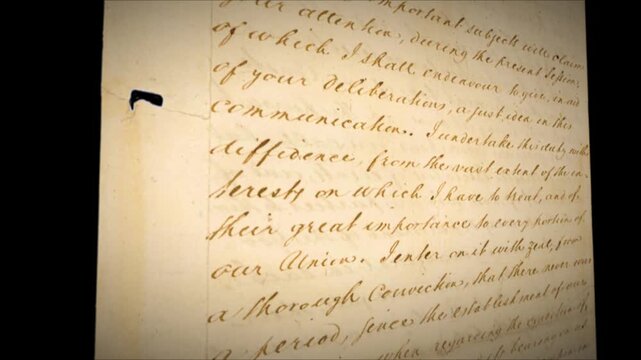 important subjects will claim
your attention, during the present Session,
of which I shall endeavour to give, in aid
of your deliberations, a just idea in this
communication. I undertake this duty with
diffidence, from the vast extent of the in-
terests on which I have to treat, and of
their great importance to every portion of
our Union. I enter on it with zeal, from
a thorough Conviction, that there never was
a period, since the establishment of our
when regarding the condition of
bearing on us